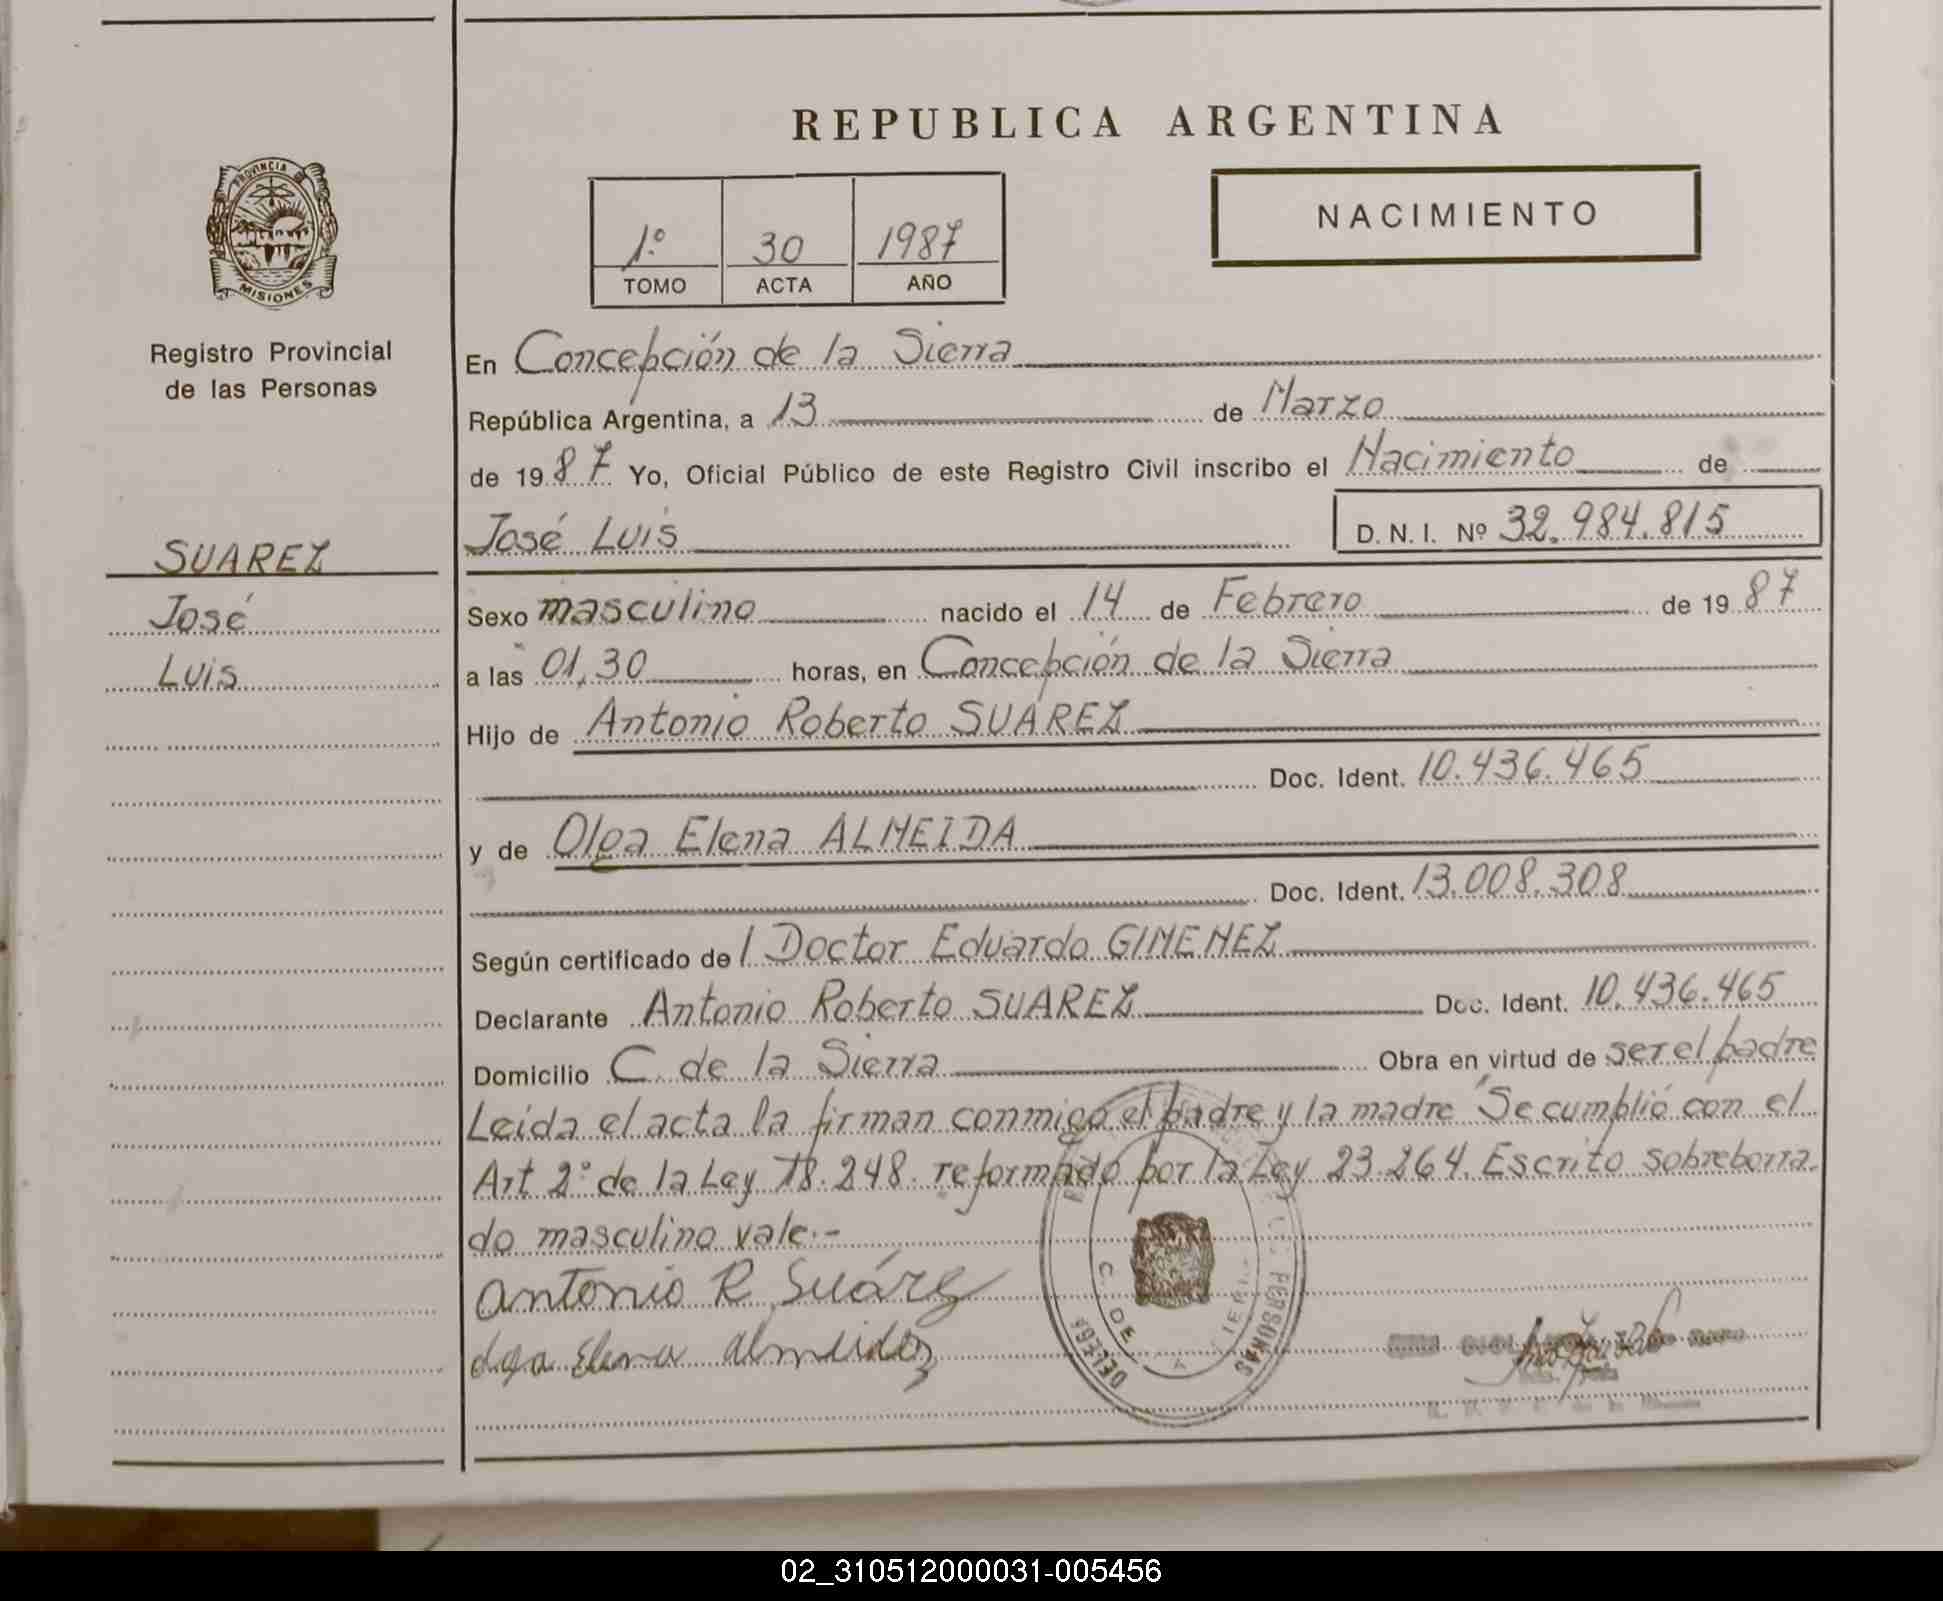 REPUBLICA ARGENTINA
PROVINCIA
MISIONES
Registro Provincial
de las Personas
SUAREZ
José
Luis
1º 30 1987
TOMO ACTA AÑO
NACIMIENTO
En Concepción de la Sierra
República Argentina, a 13 de Marzo
de 1987 Yo, Oficial Público de este Registro Civil inscribo el Nacimiento de
José Luis D. N. I. Nº 32.984.815
Sexo masculino nacido el 14 de Febrero de 1987
a las 01,30 horas, en Concepción de la Sierra
Hijo de Antonio Roberto SUAREZ
Doc. Ident. 10.436.465
y de Olga Elena ALMEIDA
Doc. Ident. 13.008.308
Según certificado de / Doctor Eduardo GIMENEZ
Declarante Antonio Roberto SUAREZ Doc. Ident. 10.436.465
Domicilio C. de la Sierra Obra en virtud de ser el padre
Leida el acta la firman conmigo el padre y la madre "Se cumplió con el
Art 2° de la Ley 18.248. reformado por la Ley 23.264. Escrito sobreborra-
do masculino vale.-
Antonio R. Suárez
Olga Elena Almeida
PERSONAS
C. DE
02_310512000031-005456